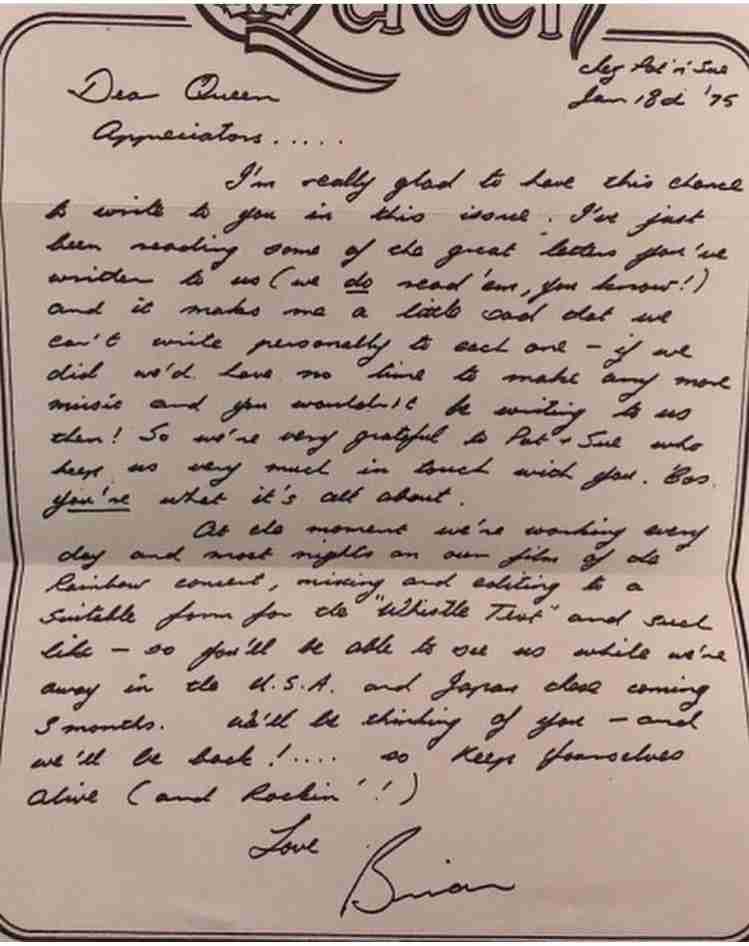 Queen
c/o Pat 'n' Sue
Jan 18th '75
Dear Queen
Appreciators.....
I'm really glad to have this chance
to write to you in this issue. I've just
been reading some of the great letters you've
written to us (we do read 'em, you know!)
and it makes me a little sad that we
can't write personally to each one - if we
did we'd have no time to make any more
music and you wouldn't be writing to us
then! So we're very grateful to Pat + Sue who
keep us very much in touch with you. 'Cos
you're what it's all about.
At the moment we're working every
day and most nights on our film of the
Rainbow concert, mixing and editing to a
suitable form for the "Whistle Test" and such
like - so you'll be able to see us while we're
away in the U.S.A. and Japan these coming
3 months. We'll be thinking of you - and
we'll be back!.... so Keep Yourselves
Alive (and Rockin'!)
Love
Brian